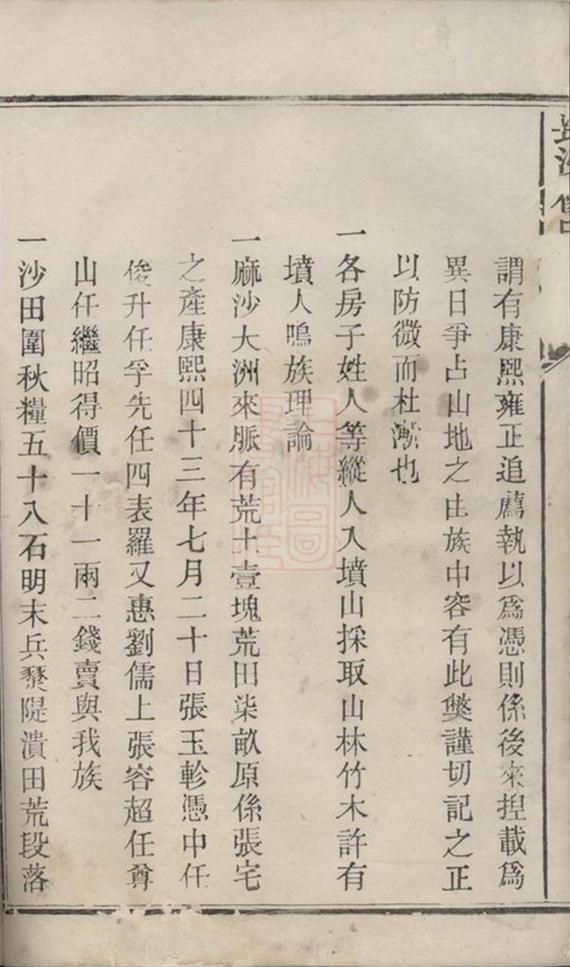 謂有康熙雍正追薦執以爲憑則係後來捏載爲
異日爭占山地之由族中容有此獘謹切記之正
以防微而杜漸也
一各房子姓人等縱人入墳山採取山林竹木許有
墳人鳴族理論
一麻沙大洲來脈有荒土壹塊荒田柒畝原係張宅
之產康熙四十三年七月二十日張玉軫憑中任
俊升任孚先任四表羅又惠劉儒上張容超任尊
山任繼昭得價一十一兩二錢賣與我族
一沙田圍秋糧五十八石明末兵燹隄潰田荒段落